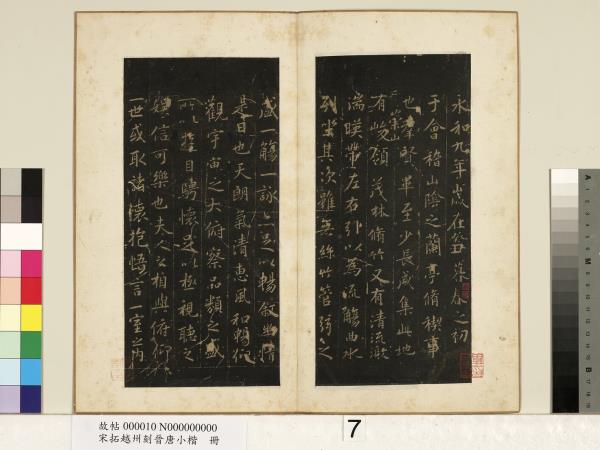 永和九年歲在癸丑暮春之初
于會稽山陰之蘭亭脩禊事
也羣賢畢至少長咸集此地
崇山
有峻領茂林脩竹又有清流激
湍暎帶左右引以為流觴曲水
列坐其次雖無絲竹管弦之
盛一觴一詠亦足以暢敘幽情
是日也天朗氣清惠風和暢仰
觀宇宙之大俯察品類之盛
所以遊目騁懷足以極視聽之
娛信可樂也夫人之相與俯仰
一世或取諸懷抱悟言一室之內
故帖 000010 N000000000
宋拓越州刻晉唐小楷 冊
7
A
M
B